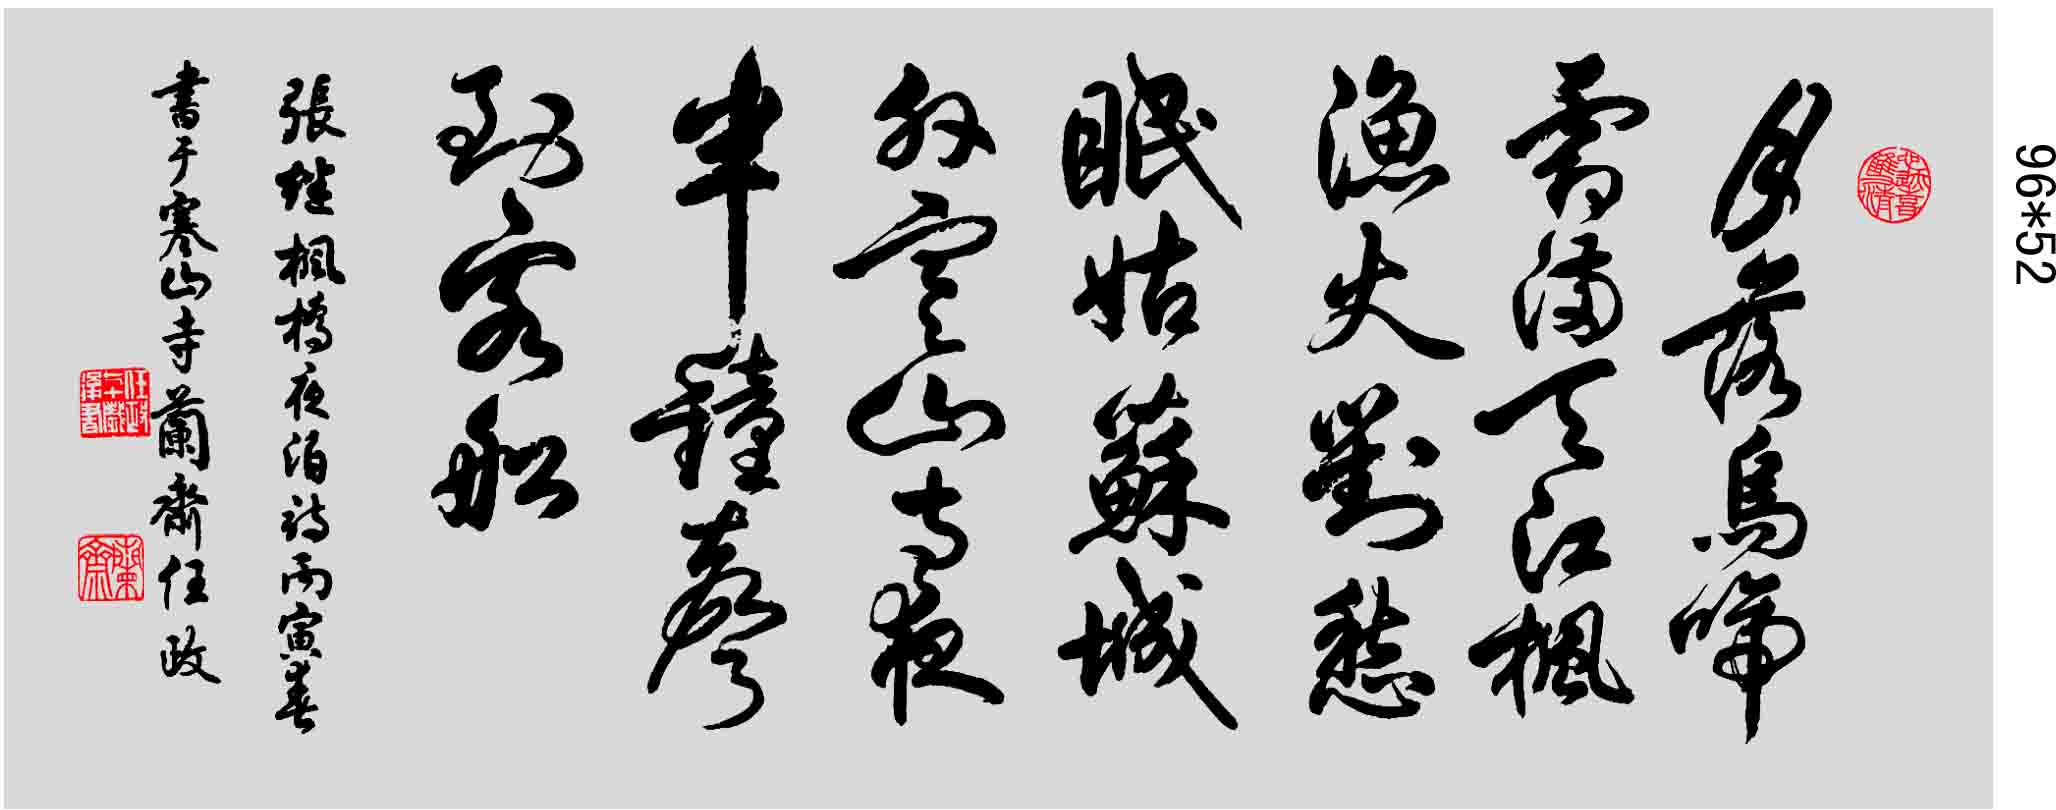 月落烏啼
霜滿天江楓
漁火對愁
眠姑蘇城
外寒山寺夜
半鐘聲
到客船
張继楓橋夜泊詩丙寅春
書于寒山寺蘭齋任政
96*52